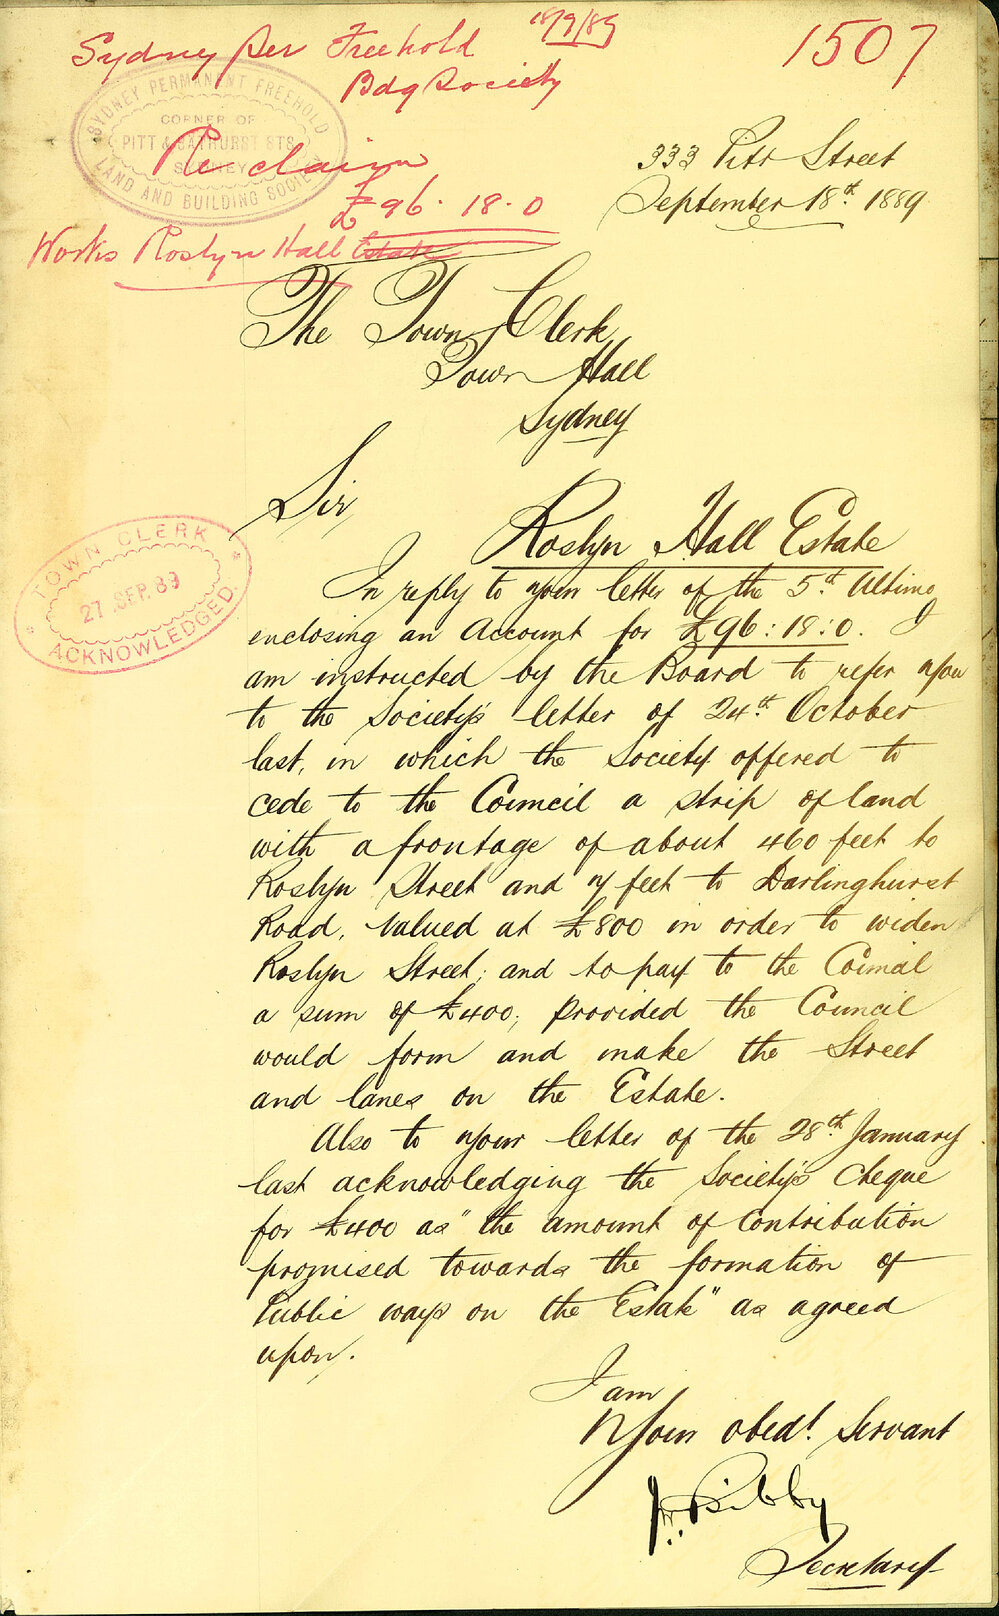 Sydney Per Freehold
18/9/89
1507
Bdg Society
SYDNEY PERMANENT FREEHOLD
CORNER OF
PITT & BATHURST STS
SYDNEY
LAND AND BUILDING SOCIETY
Re claim
£96. 18. 0
Works Roslyn Hall Estate
333 Pitt Street
September 18th. 1889
The Town Clerk
Town Hall
Sydney
Sir
TOWN CLERK
27 SEP. 89
ACKNOWLEDGED
Roslyn Hall Estate
In reply to your letter of the 5th. Ultimo
enclosing an Account for £96:18:0. I
am instructed by the Board to refer you
to the Society's letter of 24th. October
last, in which the Society offered to
cede to the Council a strip of land
with a frontage of about 460 feet to
Roslyn Street and 7 feet to Darlinghurst
Road, valued at £800 in order to widen
Roslyn Street; and to pay to the Council
a sum of £400; provided the Council
would form and make the Street
and lanes on the Estate.
Also to your letter of the 28th. January
last acknowledging the Society's cheque
for £400 as "the amount of Contribution
promised towards the formation of
Public ways on the Estate" as agreed
upon.
I am
Your obedt. Servant
Bibby
Secretary